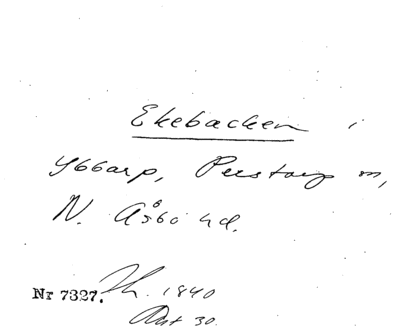 Ekebacken i
Ybbarp, Perstorp sn,
N. Åsbo hd.
Nr 7327. Th. 1840
Aut 30.